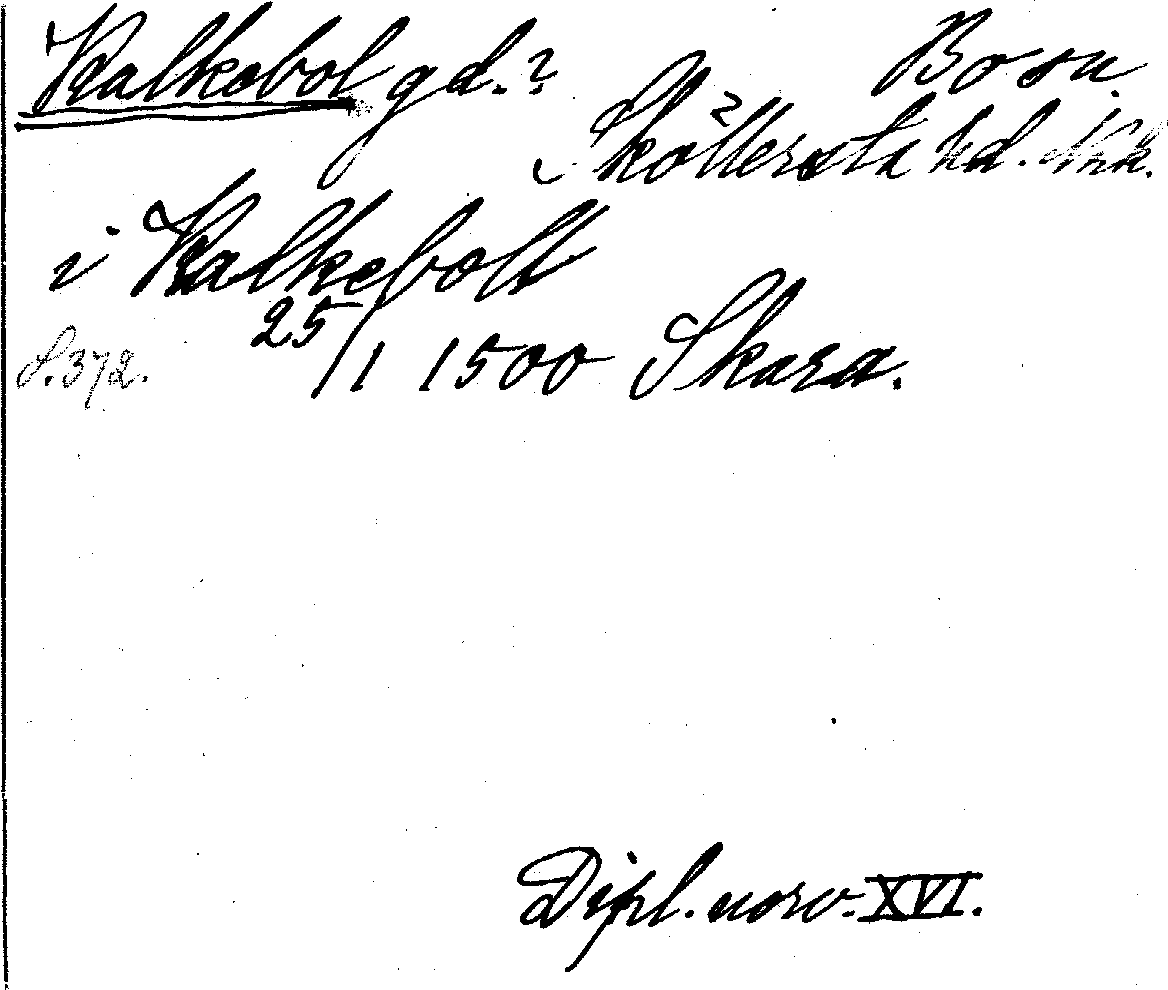 Kalkebol gd.? Bo sn.
Sköllersta hd. Nrk.
i Kalkeboll
S. 372. 25/1 1500 Skara.
Dipl. norv. XVI.